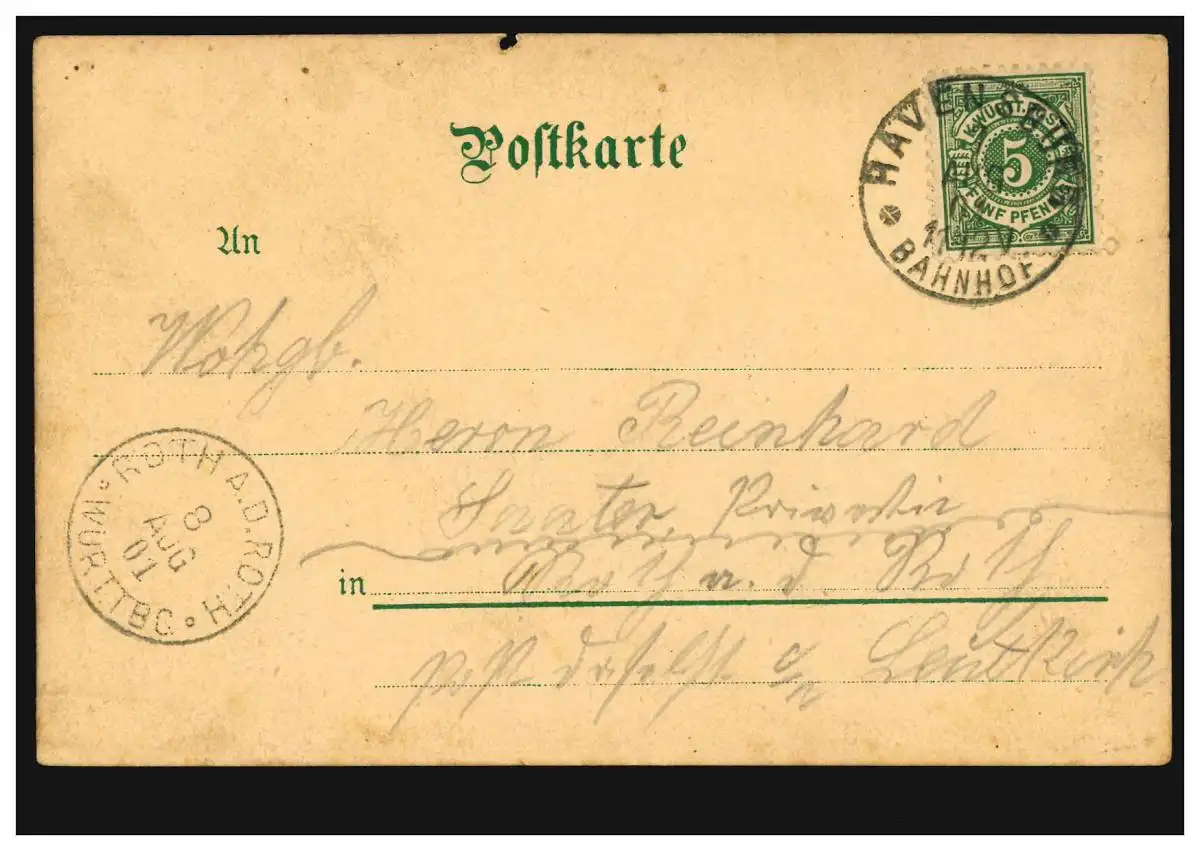 Postkarte
K. WÜRTT. POST
5
FÜNF PFENNIG
BAHNHOF
An
Wohlgb.
Herrn Reinhard
in Roth a. d. Roth
Leutkirch
ROTH A. D. ROTH
8
AUG
01
WÜRTTBG